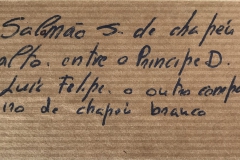 Salomão S. de chapéu
alto. entre o Principe D.
Luiz Felipe. o outro compa
iro de chapéu branco